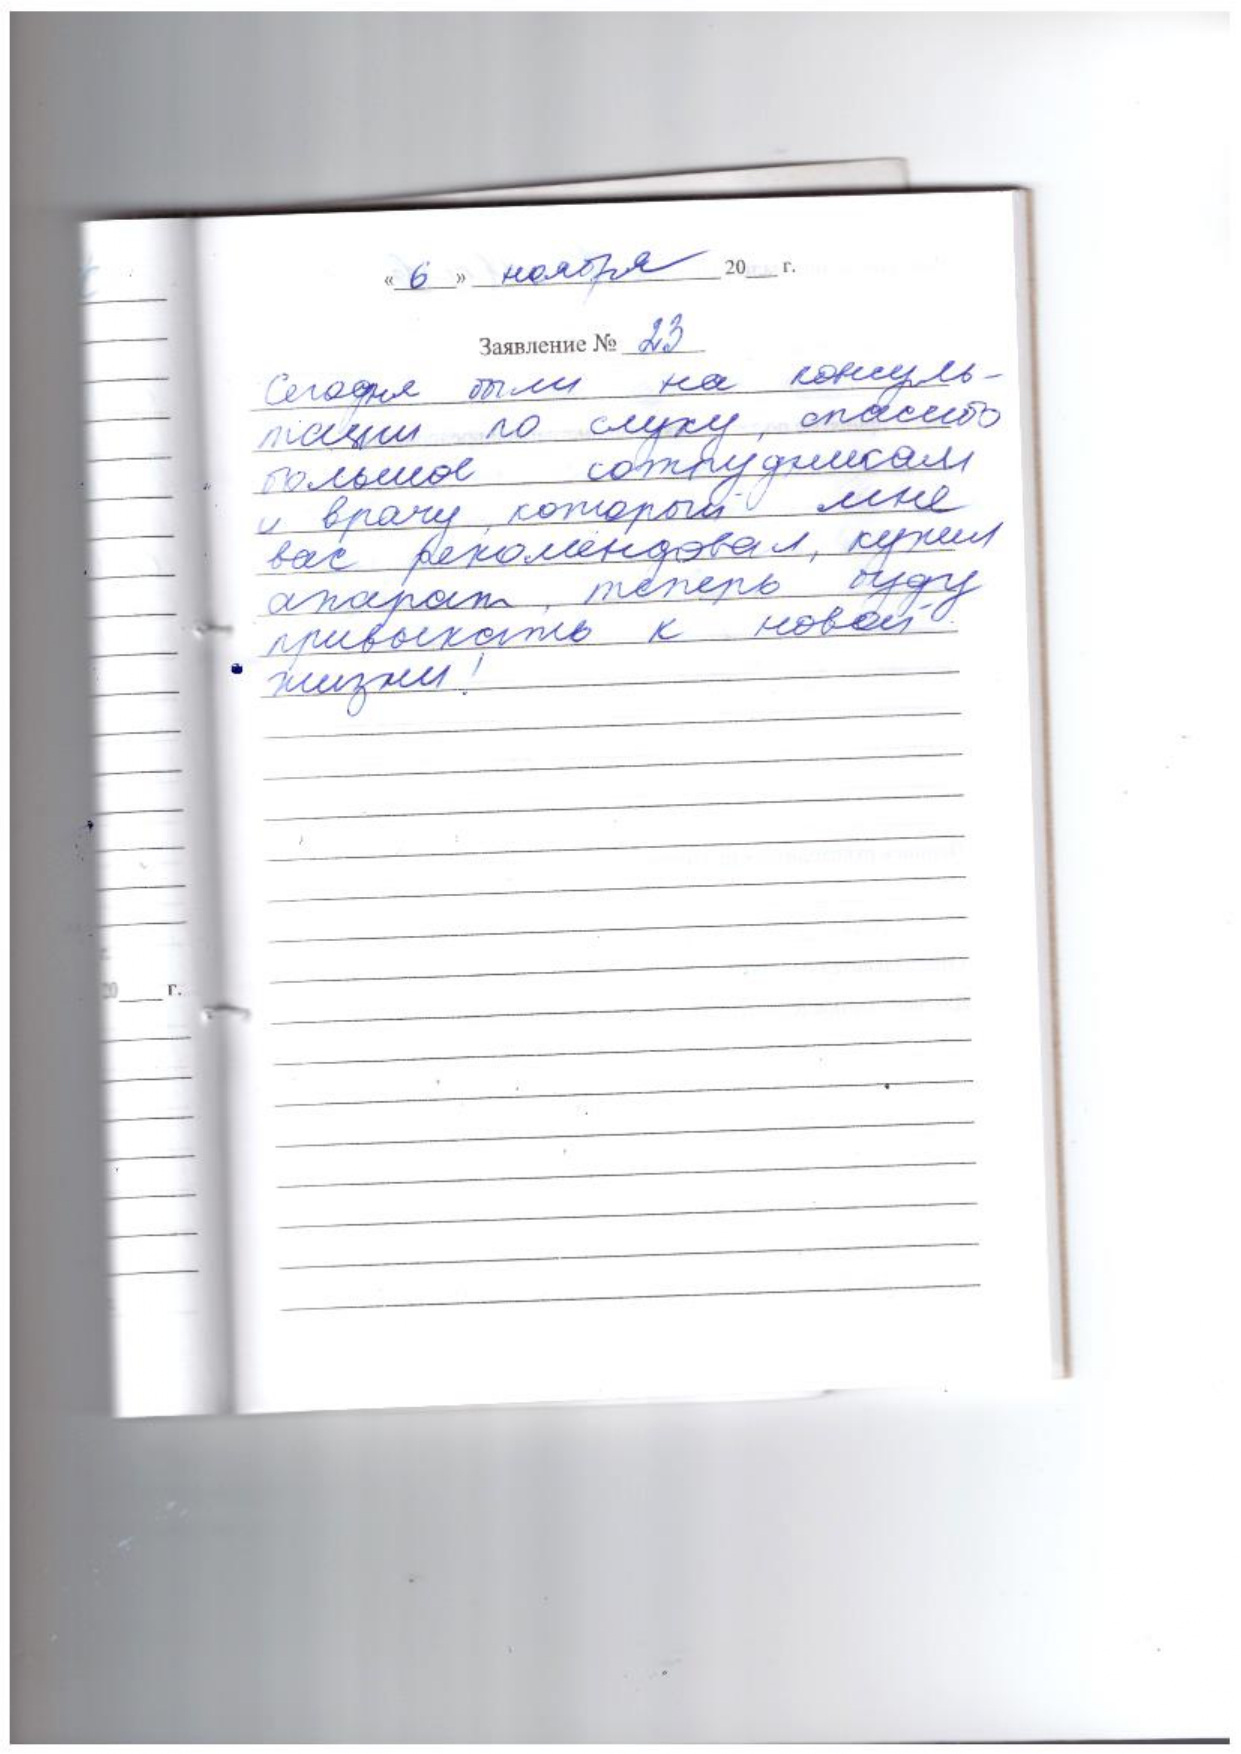 « 6 » ноября 20___ г.
Заявление № 23
Сегодня были на консуль-
тации по слуху, спасибо
большое сотрудникам
и врачу, который мне
вас рекомендовал, купил
апарат, теперь буду
привыкать к новой
жизни!
20____ г.